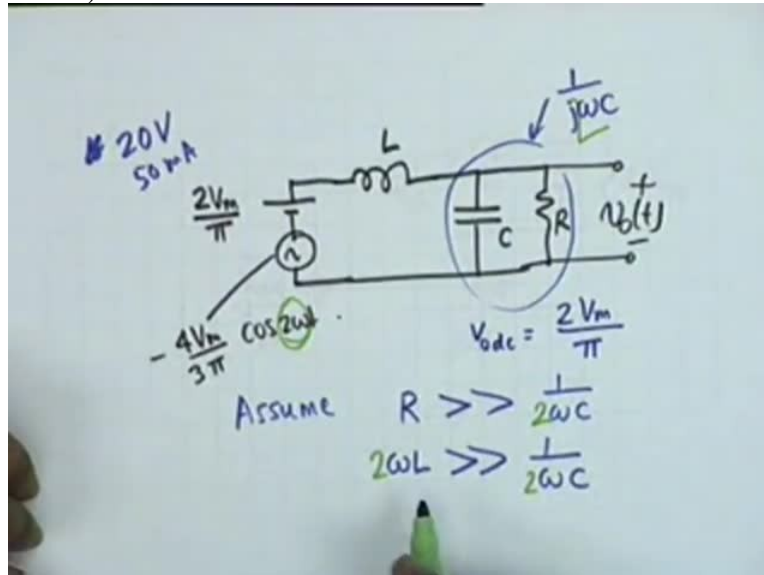 20V
50 mA
1
jωC
L
2Vm
π
C
R
+
vo(t)
-
- 4Vm
3π
cos 2ωt .
Vodc = 2Vm
π
Assume R >> 1
2ωC
2ωL >> 1
2ωC